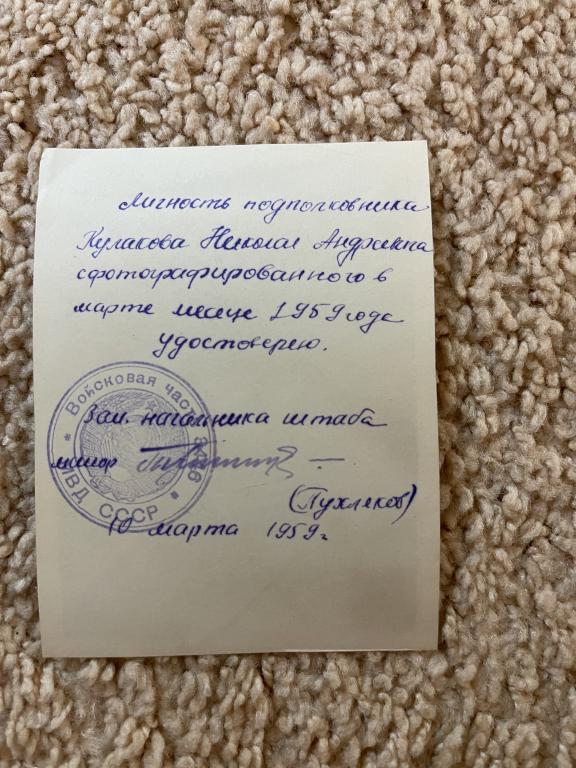 Личность подполковника
Кулакова Николая Андреевича
сфотографированного в
марте месяце 1959 года
удостоверяю.
Войсковая часть
МВД СССР
Зам. начальника штаба
майор
(Пухляков)
10 марта 1959 г.